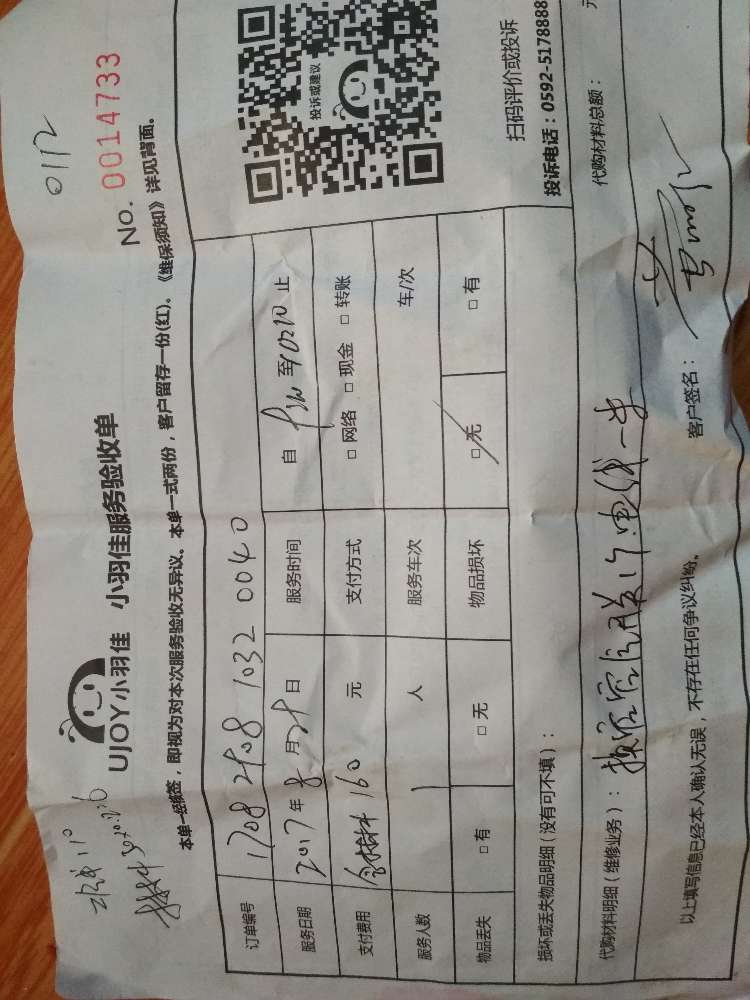 0112
No. 0014733
UJOY小羽佳 小羽佳服务验收单
本单一经签，即视为对本次服务验收无异议。本单一式两份，客户留存一份(红)。《维保须知》详见背面。
订单编号 1708 2808 1032 0040
服务日期 2017年8月28日 服务时间 自 至 止
支付费用 含材料160 元 支付方式 □ 网络 □ 现金 □ 转账
服务人数 1 人 服务车次 车/次
物品丢失 □ 有 □ 无 物品损坏 □ 无 □ 有
投诉或建议
扫码评价或投诉
投诉电话：0592-5178888
损坏或丢失物品明细（没有可不填）：
代购材料明细（维修业务）： 代购材料总额： 元
以上填写信息已经本人确认无误，不存在任何争议纠纷。 客户签名：